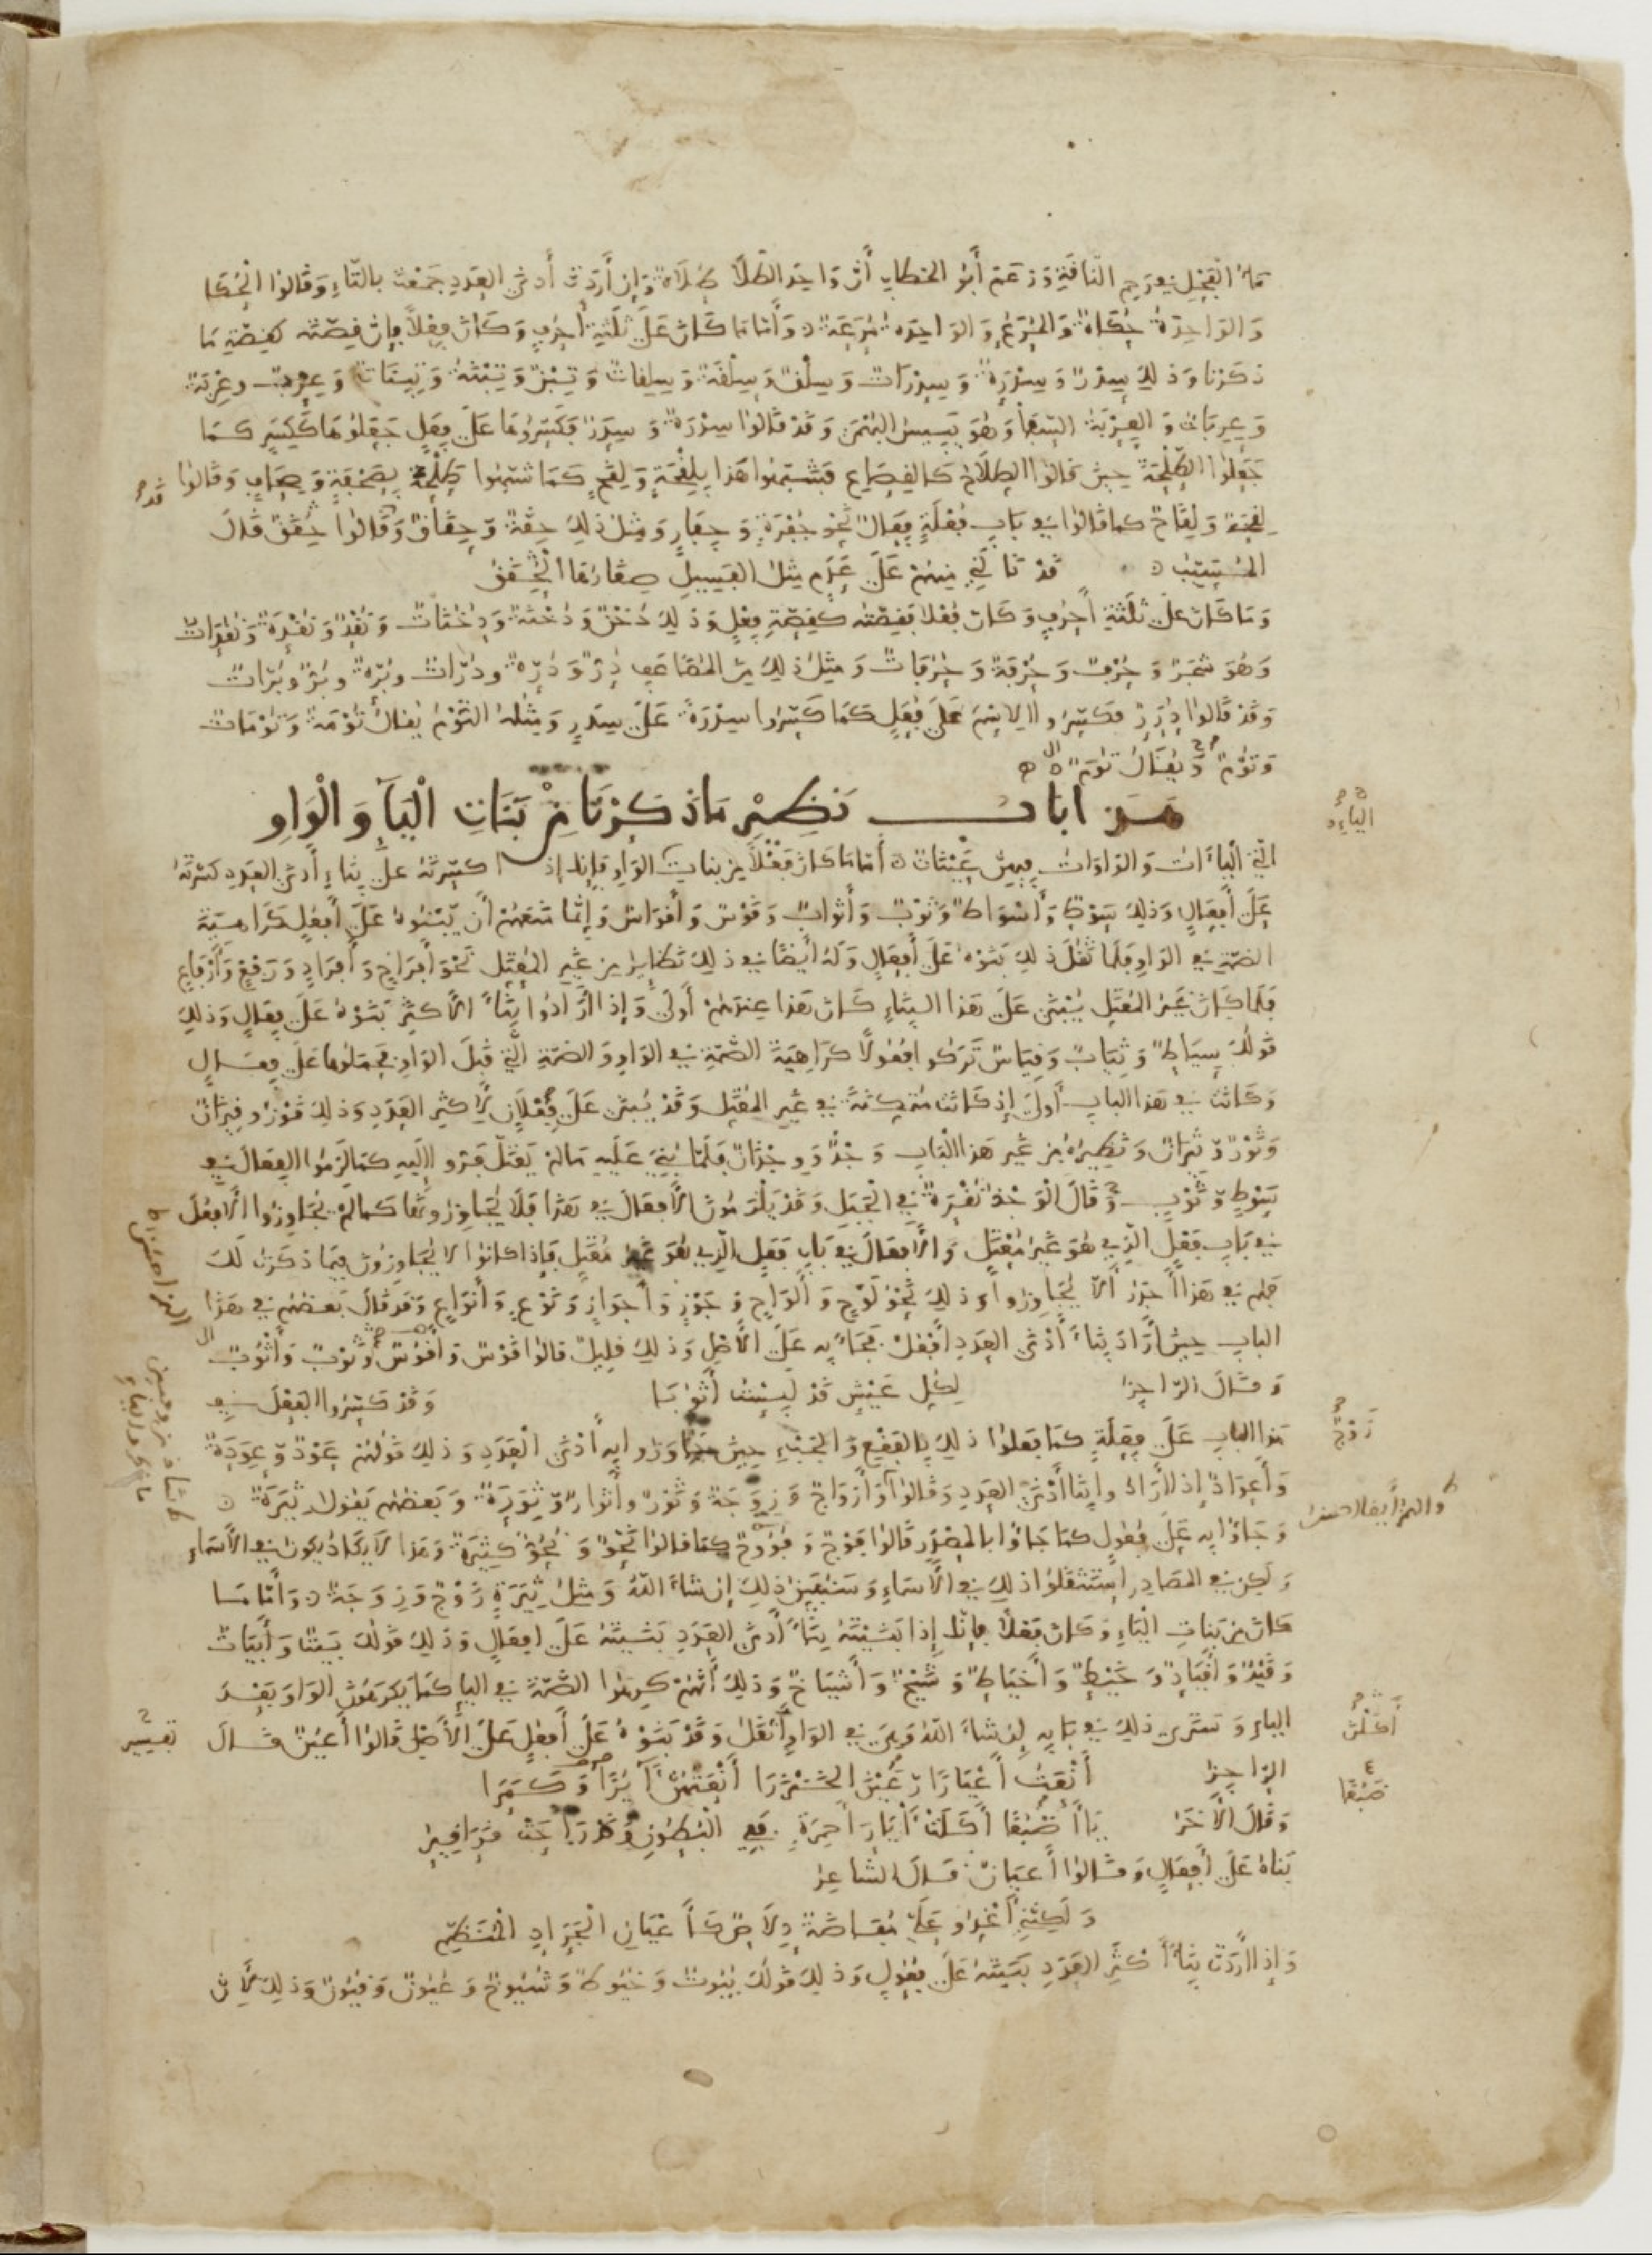 ماء الفحل في رحم الناقة وزعم أبو الخطاب أن واحد الطلا طلاة وإن أردت أدنى العدد جمعت بالتاء وقالوا الحكا
والواحدة حكاة والمرع والواحدة مرعة وأما ما كان على ثلثة أحرف وكان فعلا فإن قصته كقصة ما
ذكرنا وذلك سدر وسدرة وسدرات وسلق وسلقة وسلقات وتبن وتبنة وتبنات وعرب وعربة
وعربات والعربة السفا وهو يبيس البهمى وقد قالوا سدرة وسدر فكسروها على فعل جعلوها ككسر كما
جعلوا الطلحة حين قالوا الطلاح كالقصاع فشبهوا هذا بلقحة ولقح كما شبهوا طلحة بصحفة وصحاف وقالوا
لقحة ولقاح كما قالوا في باب فعلة فعال نحو جفرة وجفار ومثل ذلك حقة وحقاق وقالوا حقق قال
المسيب قد نالني منهم على عدم مثل الفسيل صغارها الحقق
وما كان على ثلثة أحرف وكان فعلا فقصته كقصة فعل وذلك دخن ودخنة ودخنات ونقد ونقدة ونقدات
وهو شجر وحرف وحرفة وحرفات ومثل ذلك من المضاعف در ودرة ودرات وبرة وبر وبرات
وقد قالوا درر فكسروا الاسم على فعل كما كسروا سدرة على سدر ومثله التوم يقال تومة وتومات
وتوم ويقال توم
هذا باب نظير ما ذكرنا من بنات الياء والواو
التي الياءات والواوات فيهن عينات أما ما كان فعلا من بنات الواو فإنك إذا كسرته على بناء أدنى العدد كسرته
على أفعال وذلك سوط وأسواط وثوب وأثواب وقوس وأقواس وإنما منعهم أن يبنوه على أفعل كراهية
الضمة في الواو فلما ثقل ذلك بنوه على أفعال وله أيضا في ذلك نظاير من غير المعتل نحو أفراخ وأفراد ورفغ وأرفاغ
فلما كان غير المعتل يبنى على هذا البناء كان هذا عندهم أولى وإذا أرادوا بناء الأكثر بنوه على فعال وذلك
قولك سياط وثياب وقياس تركوا فعولا كراهية الضمة في الواو والضمة التي قبل الواو فحملوها على فعال
وكانت في هذا الباب أولى إذ كانت متمكنة في غير المعتل وقد يبنى على فعلان لأكثر العدد وذلك قوز وقيزان
وثور وثيران ونظيره من غير هذا الباب وجذ ووجذان فلما بني عليه ما لم يعتل فروا إليه كما لزموا الفعال في
سوط وثوب وقال الوجذ نقرة في الجبل وقد يلزمون الأفعال في هذا فلا يجاوزونها كما لم يجاوزوا الأفعل
في باب فعل الذي هو غير معتل والأفعال في باب فعل الذي هو غير معتل فإذا كانوا لا يجاوزون فيما ذكرت لك
فهم في هذا أجدر ألا يجاوزوا وذلك نحو لوح وألواح وجوز وأجواز ونوع وأنواع وقد قال بعضهم في هذا
الباب حين أراد بناء أدنى العدد أفعل فجاء به على الأصل وذلك قليل قالوا قوس وأقوس وثوب وأثوب
وقال الراجز لكل عيش قد لبست أثوبا وقد كسروا الفعل في
هذا الباب على فعلة كما فعلوا ذلك بالفقع والجبء حين جاوزوا به أدنى العدد وذلك قولهم عود وعودة
وأعواد إذ أرادوا بناء أدنى العدد وقالوا أزواج وزوجة وثور وأثوار وثورة وبعضهم يقول ثيرة
وجاؤا به على فعول كما جاؤا بالمصدر قالوا فوج وفؤوج كما قالوا نحو ونحو كثيرة وهذا لا يكاد يكون في الأسماء
ولكن في المصادر استثقلوا ذلك في الأسماء وسنبين ذلك إن شاء الله ومثل ثيرة زوج وزوجة وأما ما
كان من بنات الياء وكان فعلا فإنك إذا بنيته بناء أدنى العدد بنيته على أفعال وذلك قولك بيت وأبيات
وقيد وأقياد وخيط وأخياط وشيخ وأشياخ وذلك أنهم كرهوا الضمة في الياء كما يكرهون الواو بعد
الياء وسترى ذلك في بابه إن شاء الله وهي في الواو أثقل وقد بنوه على أفعل على الأصل قالوا أعين قال
الراجز أنعت أعيارا رعين الخنزرا أنعتهن آيرا وكمرا
وقال الآخر يا أضبعا أكلت آيار أحمرة ففي البطون وقد راحت قراقير
بناه على أفعال وقالوا أعيان قال الشاعر
ولكنني أغدو علي مفاضة دلاص كأعيان الجراد المنظم
وإذا أردت بناء أكثر العدد بنيته على فعول وذلك قولك بيوت وخيوط وشيوخ وعيون وقيون وذلك لأن
قد
الياء
زوج
أكلن
ضبعا
تفسير